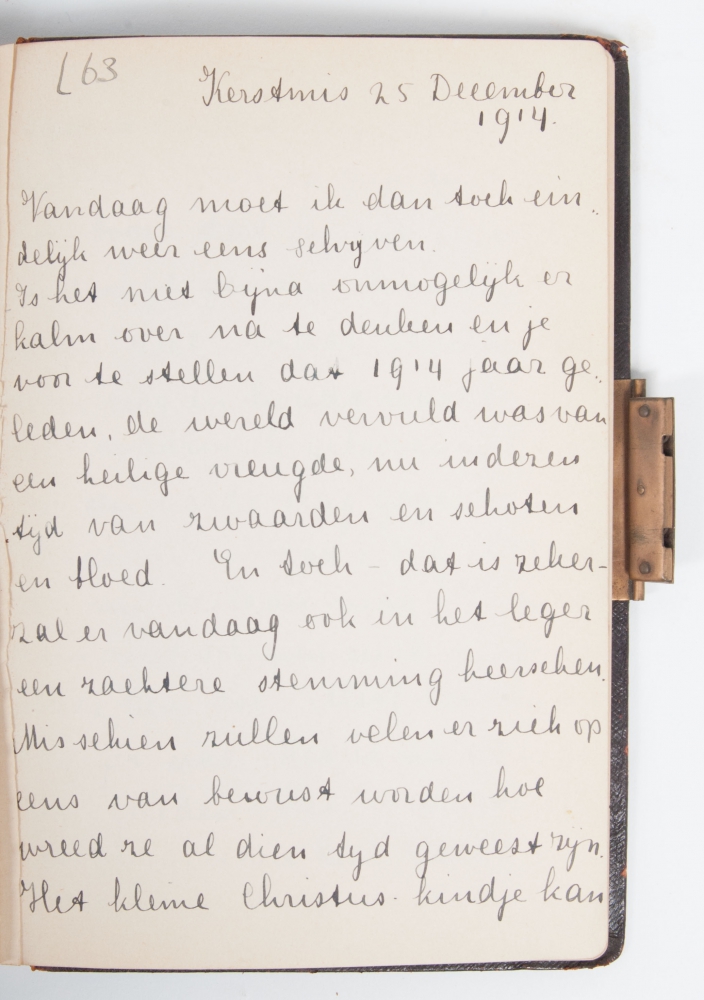 L63
Kerstmis 25 December
1914.
Vandaag moet ik dan toch ein„
delijk weer eens schrijven.
Is het niet bijna onmogelijk er
kalm over na te denken en je
voor te stellen dat 1914 jaar ge„
leden, de wereld vervuld was van
een heilige vreugde, nu in dezen
tijd van zwaarden en schoten
en bloed. En toch - dat is zeker-
zal er vandaag ook in het leger
een zachtere stemming heerschen.
Misschien zullen velen er zich op
eens van bewust worden hoe
wreed ze al dien tijd geweest zijn.
Het kleine Christus-kindje kan